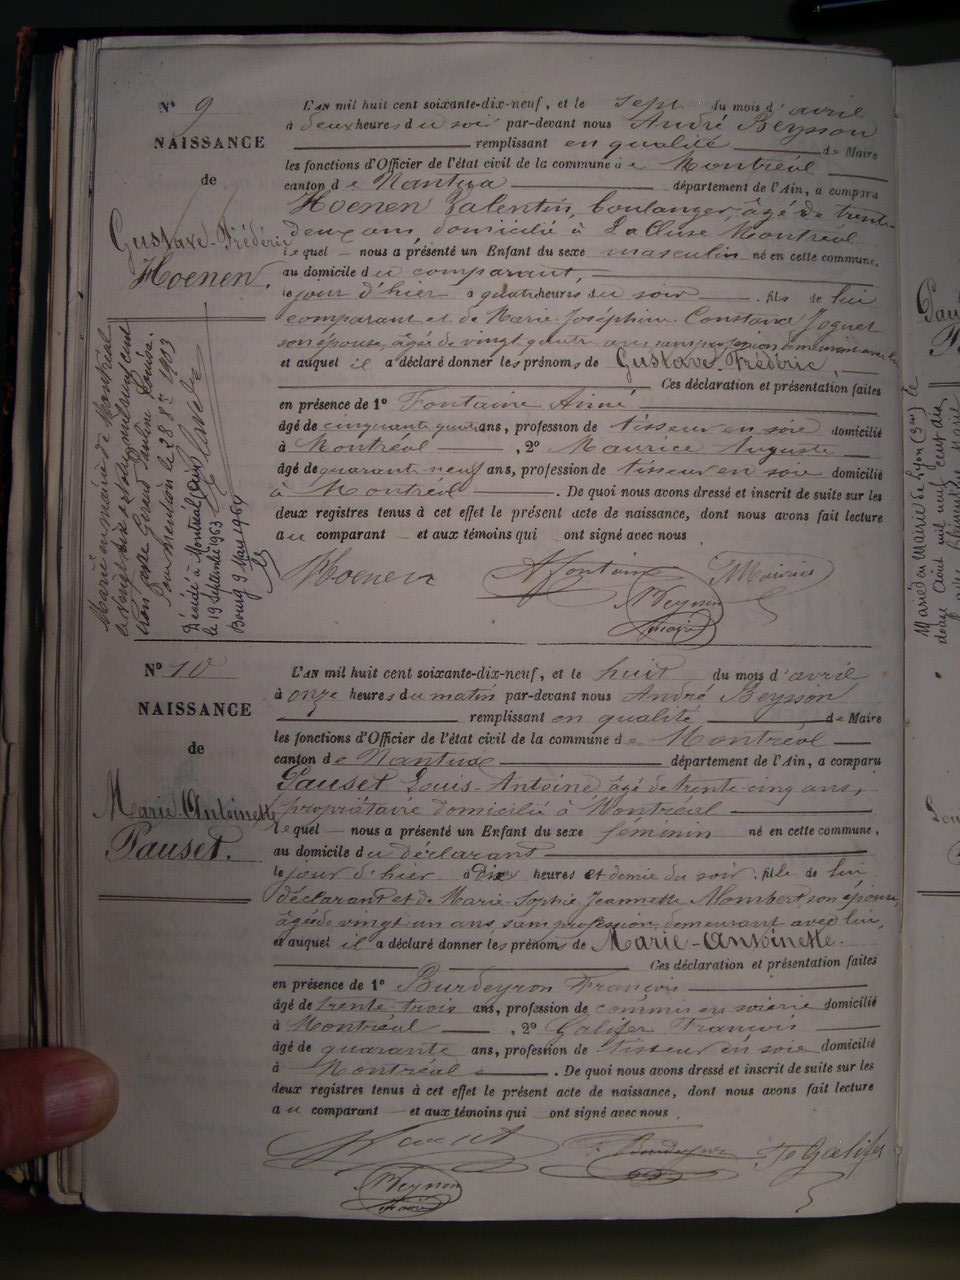 N° 9
NAISSANCE
de
Gustave-Frédéric
Hoenen.
L'AN mil huit cent soixante-dix-neuf, et le sept du mois d'avril
à deux heures du soir par-devant nous André Beysson
remplissant en qualité de Maire
les fonctions d'Officier de l'état civil de la commune de Montréal
canton de Nantua département de l'Ain, a comparu
Hoenen Valentin, boulanger, âgé de trente-
deux ans, domicilié à La Cluse Montréal
lequel nous a présenté un Enfant du sexe masculin né en cette commune,
au domicile du comparant,
le jour d'hier à quatre heures du soir fils de lui
comparant et de Marie Joséphine Constance Joguet
son épouse, âgée de vingt quatre ans sans profession demeurant avec lui
et auquel il a déclaré donner les prénoms de Gustave-Frédéric,
Ces déclaration et présentation faites
en présence de 1° Fontaine Aimé
âgé de cinquante quatre ans, profession de tisseur en soie domicilié
à Montréal , 2° Maurice Auguste
âgé de quarante neuf ans, profession de tisseur en soie domicilié
à Montréal . De quoi nous avons dressé et inscrit de suite sur les
deux registres tenus à cet effet le présent acte de naissance, dont nous avons fait lecture
au comparant et aux témoins qui ont signé avec nous
Hoenen A Fontaine Maurice
Beysson
maire
Marié en mairie de Montréal
le vingt six mil neuf cent
trois avec Gerand Pauline Louise.
Pour mention le 28 8bre 1903
Décédé à Montréal (Ain)
le 19 Septembre 1963
Bourg 9 Mars 1964
N° 10
NAISSANCE
de
Marie-Antoinette
Pauset.
L'AN mil huit cent soixante-dix-neuf, et le huit du mois d'avril
à onze heures du matin par-devant nous André Beysson
remplissant en qualité de Maire
les fonctions d'Officier de l'état civil de la commune de Montréal
canton de Nantua département de l'Ain, a comparu
Pauset Louis-Antoine âgé de trente-cinq ans,
propriétaire domicilié à Montréal
lequel nous a présenté un Enfant du sexe féminin né en cette commune,
au domicile du déclarant
le jour d'hier à dix heures et demie du soir, fille de lui
déclarant et de Marie-Sophie Jeannette Mombert son épouse
âgée de vingt un ans, sans profession demeurant avec lui,
et auquel il a déclaré donner les prénoms de Marie-Antoinette.
Ces déclaration et présentation faites
en présence de 1° Burdeyron François
âgé de trente trois ans, profession de commis en soierie domicilié
à Montréal , 2° Galifer François
âgé de quarante ans, profession de tisseur en soie domicilié
à Montréal . De quoi nous avons dressé et inscrit de suite sur les
deux registres tenus à cet effet le présent acte de naissance, dont nous avons fait lecture
au comparant et aux témoins qui ont signé avec nous.
Pauset F. Burdeyron Galifer
Beysson
maire
Marié en Mairie de Lyon (3me) le
douze Août mil neuf cent dix